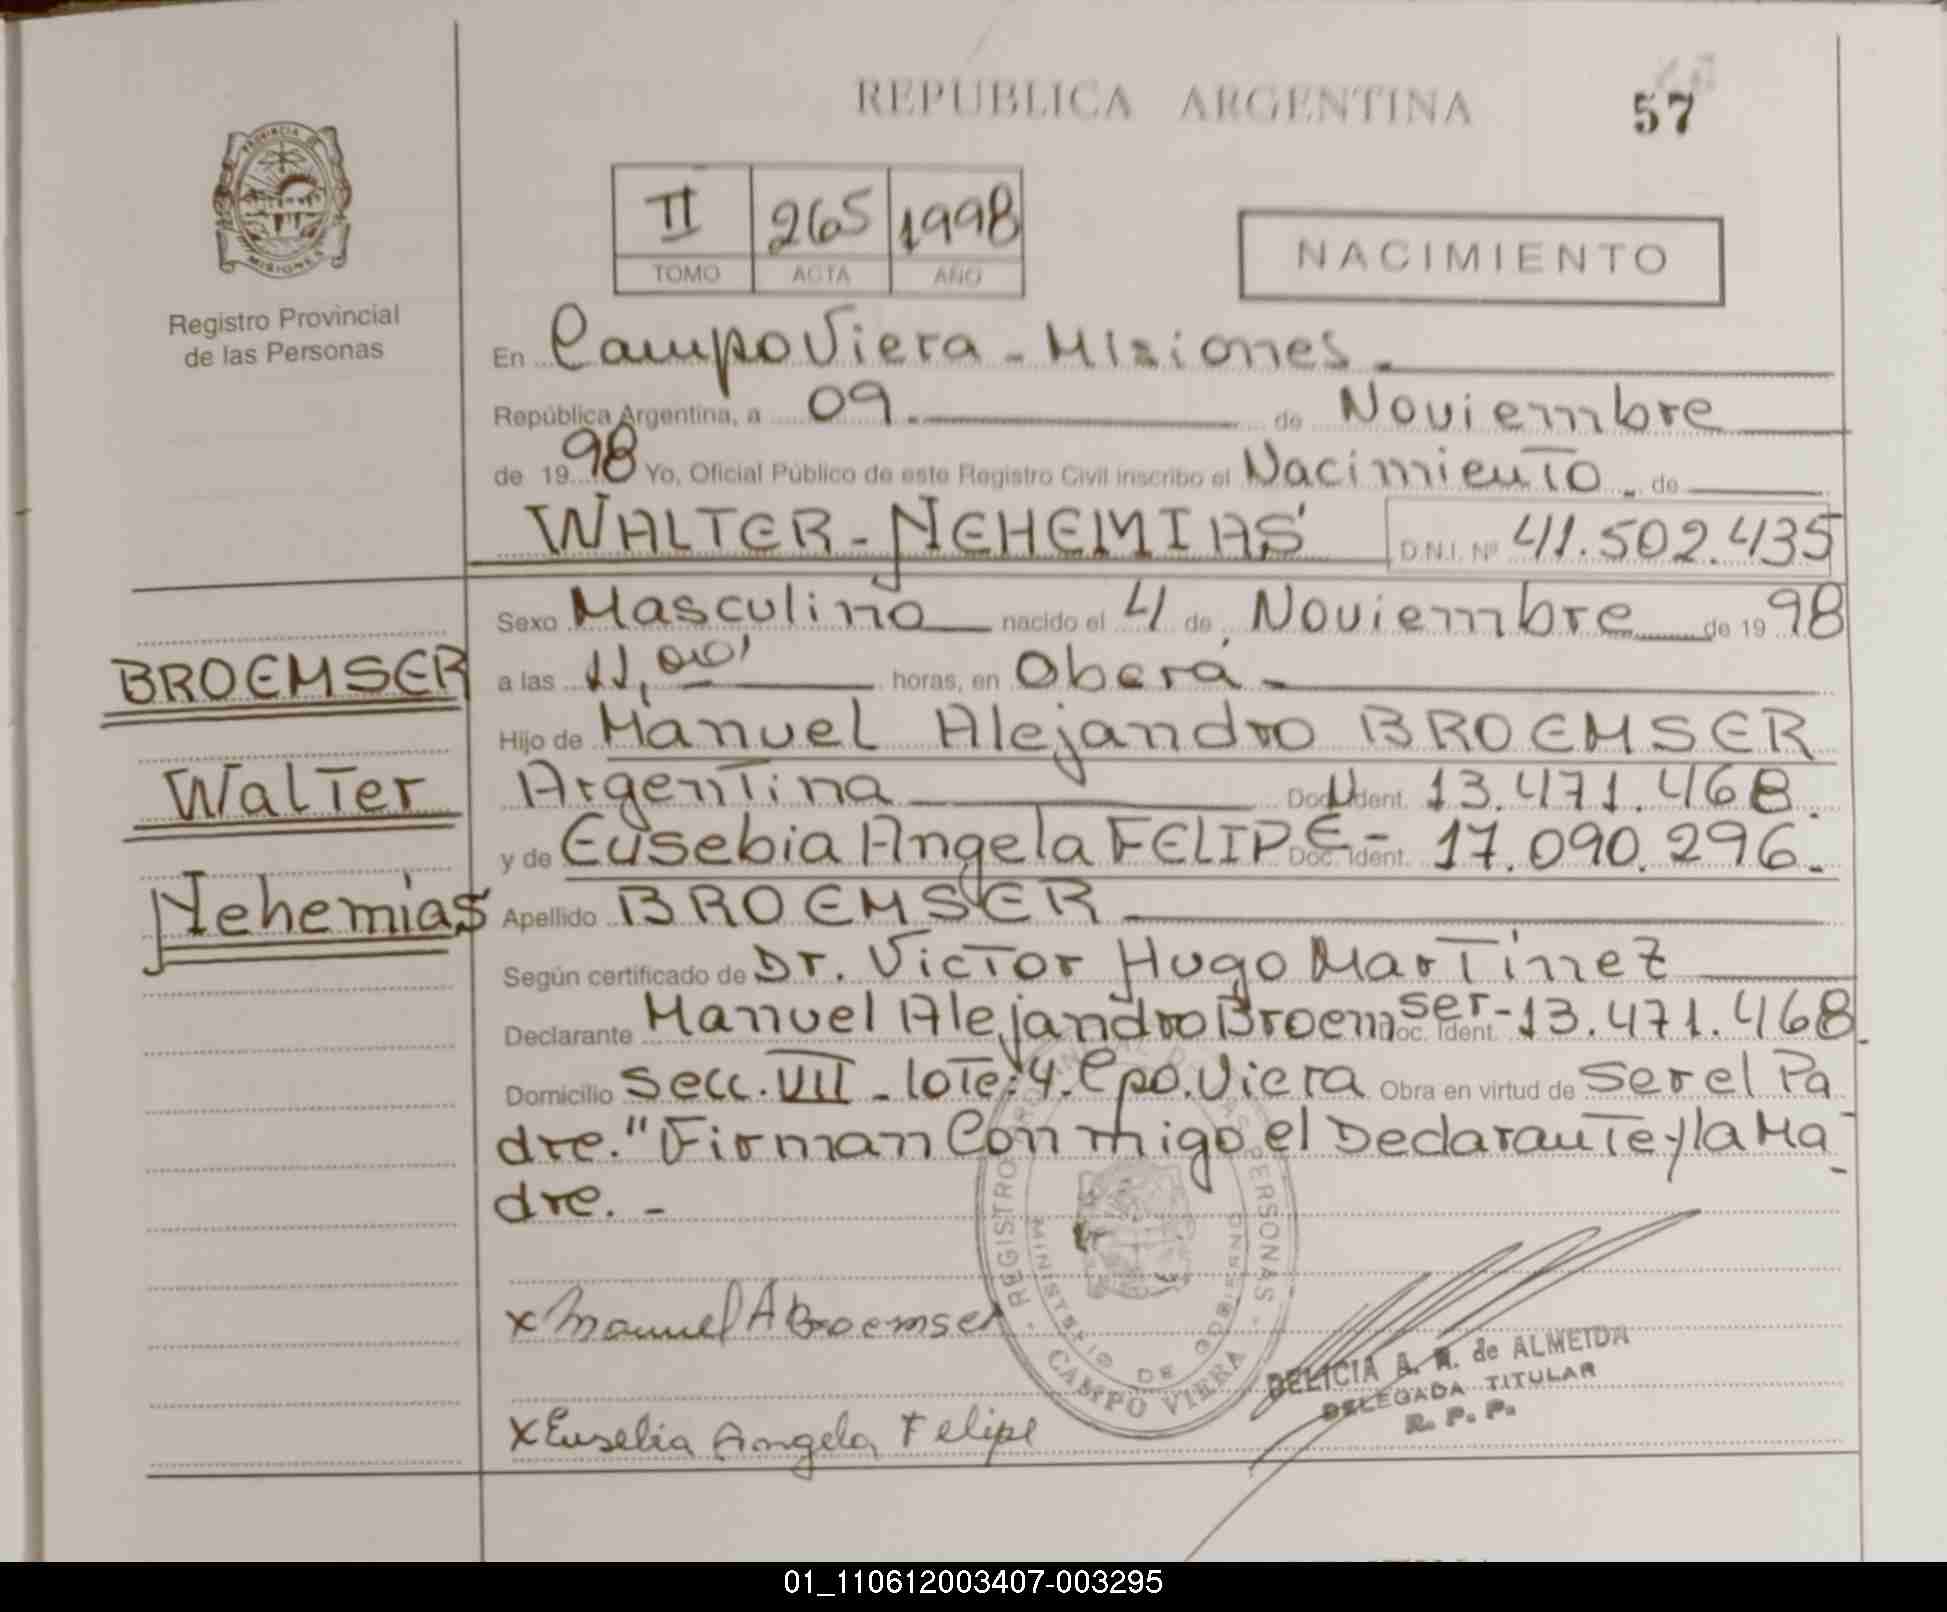 REPUBLICA ARGENTINA
57
PROVINCIA DE
MISIONES
Registro Provincial
de las Personas
II 265 1998
TOMO ACTA AÑO
NACIMIENTO
En Campo Viera - Misiones -
República Argentina, a 09 . de Noviembre
de 19 98 Yo, Oficial Público de este Registro Civil inscribo el Nacimiento - de
WALTER - NEHEMIAS D.N.I. Nº 41.502.435
Sexo Masculino nacido el 4 de Noviembre de 19 98
BROEMSER
a las 11,00' horas, en Oberá -
Hijo de Manuel Alejandro BROEMSER
Walter
Argentina Doc. Ident. 13.471.468.
y de Eusebia Angela FELIPE - Doc. Ident. 17.090.296.
Nehemias
Apellido BROEMSER -
Según certificado de Dr. Victor Hugo Martinez
Declarante Manuel Alejandro Broemser - Doc. Ident. 13.471.468.
Domicilio Secc. VII - lote: 4. Cpo. Viera Obra en virtud de Ser el Pa
dre. "Firman Conmigo el Declarante y la Ma-
dre. -
REGISTRO PROVINCIAL DE LAS PERSONAS
MINISTERIO DE GOBIERNO
CAMPO VIERA
x Manuel A Broemser
DELICIA A. R. de ALMEIDA
DELEGADA TITULAR
R. P. P.
x Eusebia Angela Felipe
01_110612003407-003295